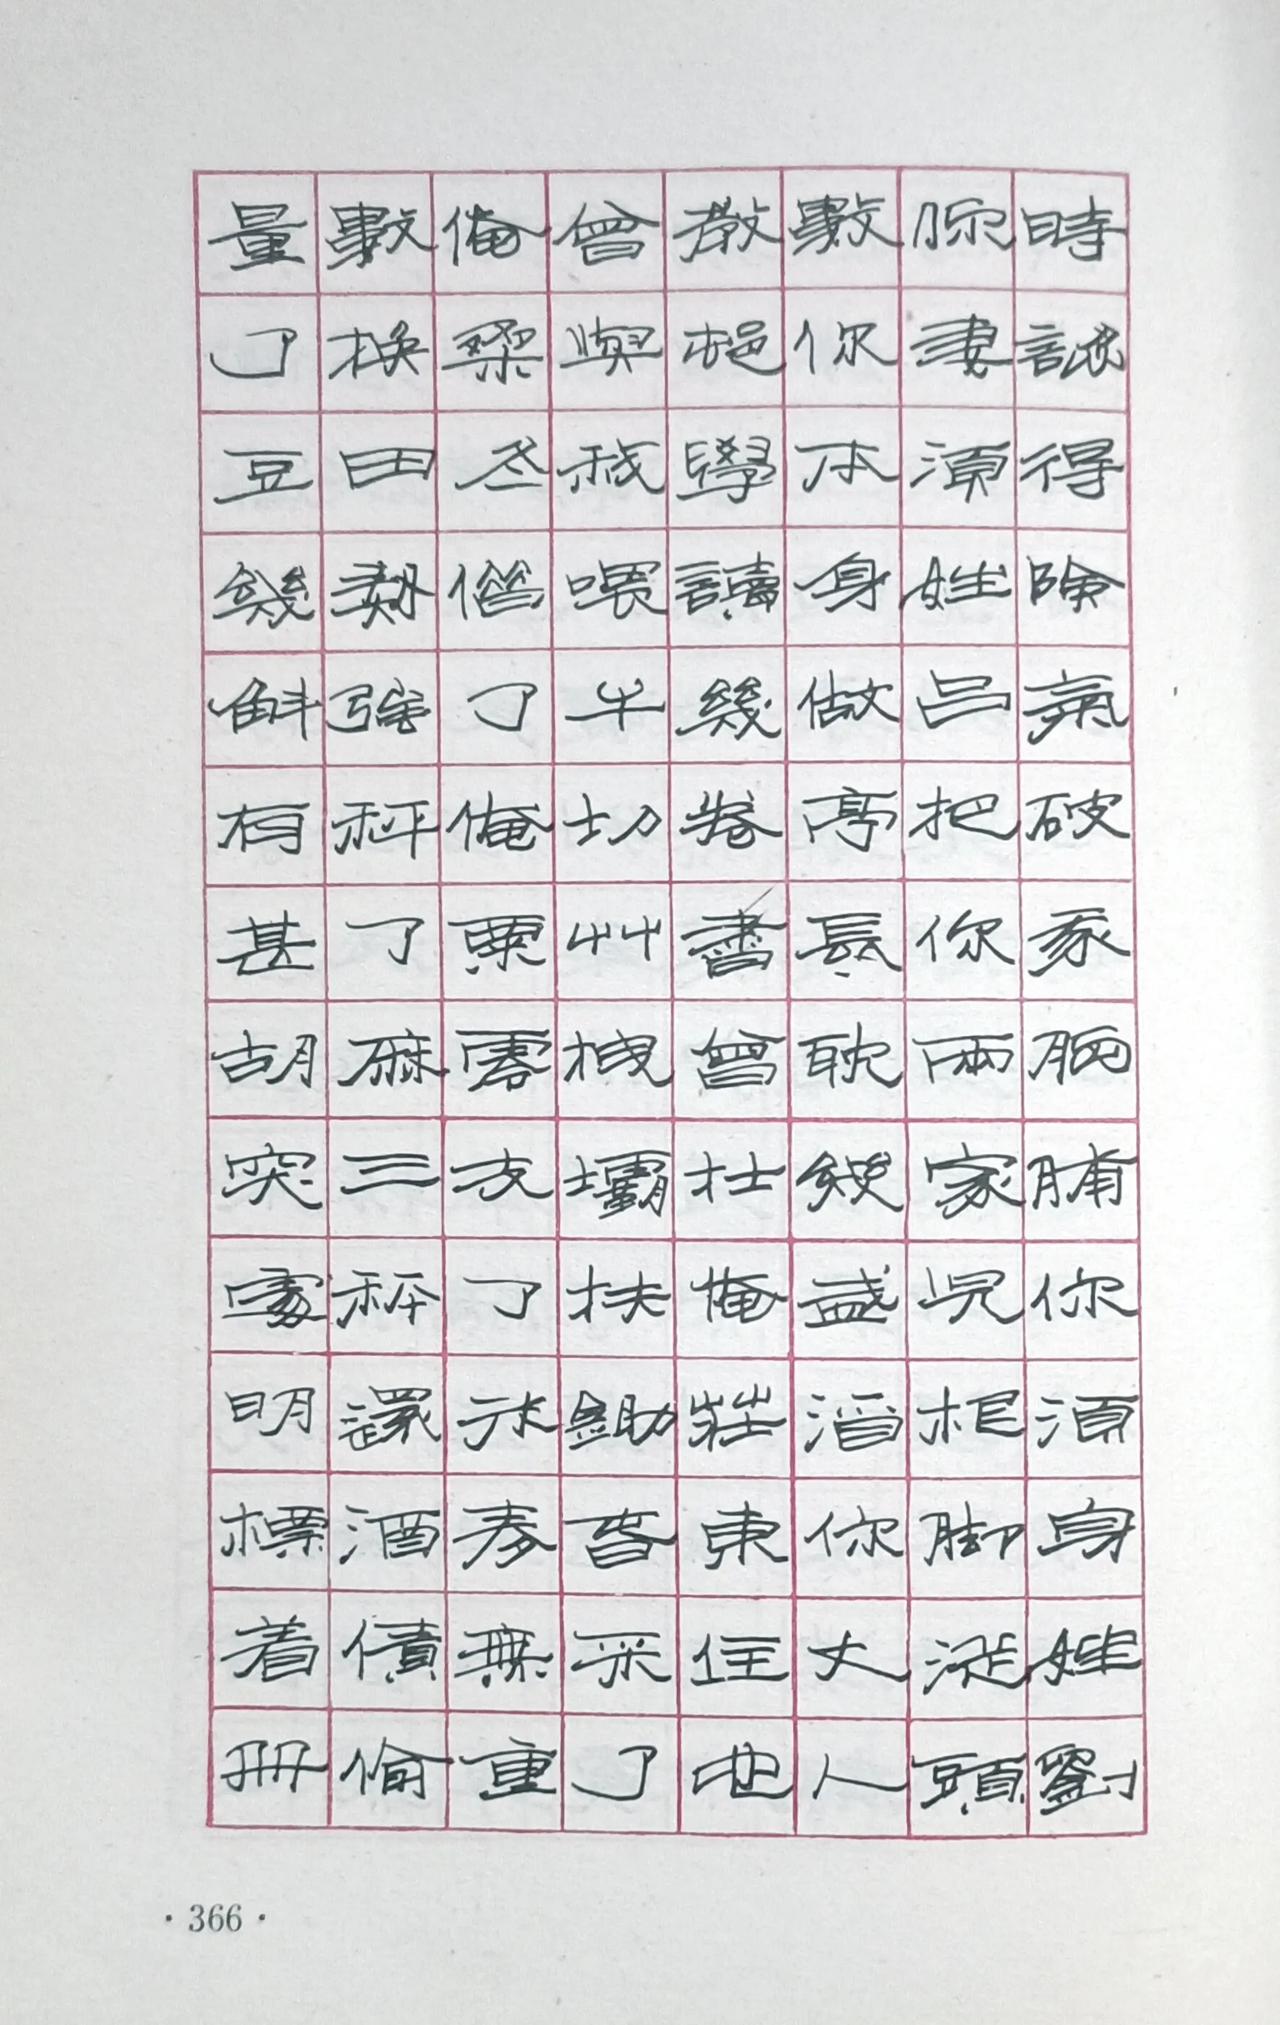 時認得險氣破我胸脯你須身姓劉
你妻須姓呂把你兩家兒根脚從頭
數你本身做亭長耽幾盞酒你丈人
教村學讀幾卷書曾在俺莊東住也
曾與我喂牛切草拽壩扶鋤春采了
俺桑冬借了俺粟零支了米麥無重
數換田契强秤了麻三秤還酒債偷
量了豆幾斛有甚胡突處明標着冊
·366·